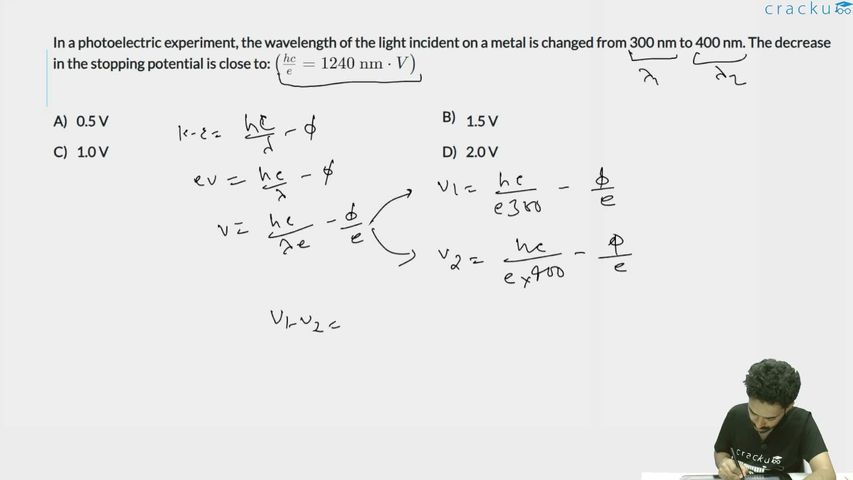 cracku
In a photoelectric experiment, the wavelength of the light incident on a metal is changed from 300 nm to 400 nm. The decrease
in the stopping potential is close to: (hc/e = 1240 nm · V)
λ1 λ2
A) 0.5 V
B) 1.5 V
C) 1.0 V
D) 2.0 V
K-ε = hc/λ - ϕ
ev = hc/λ - ϕ
v = hc/λe - ϕ/e
v1 = hc/e300 - ϕ/e
v2 = hc/e×400 - ϕ/e
v1-v2 =
cracku